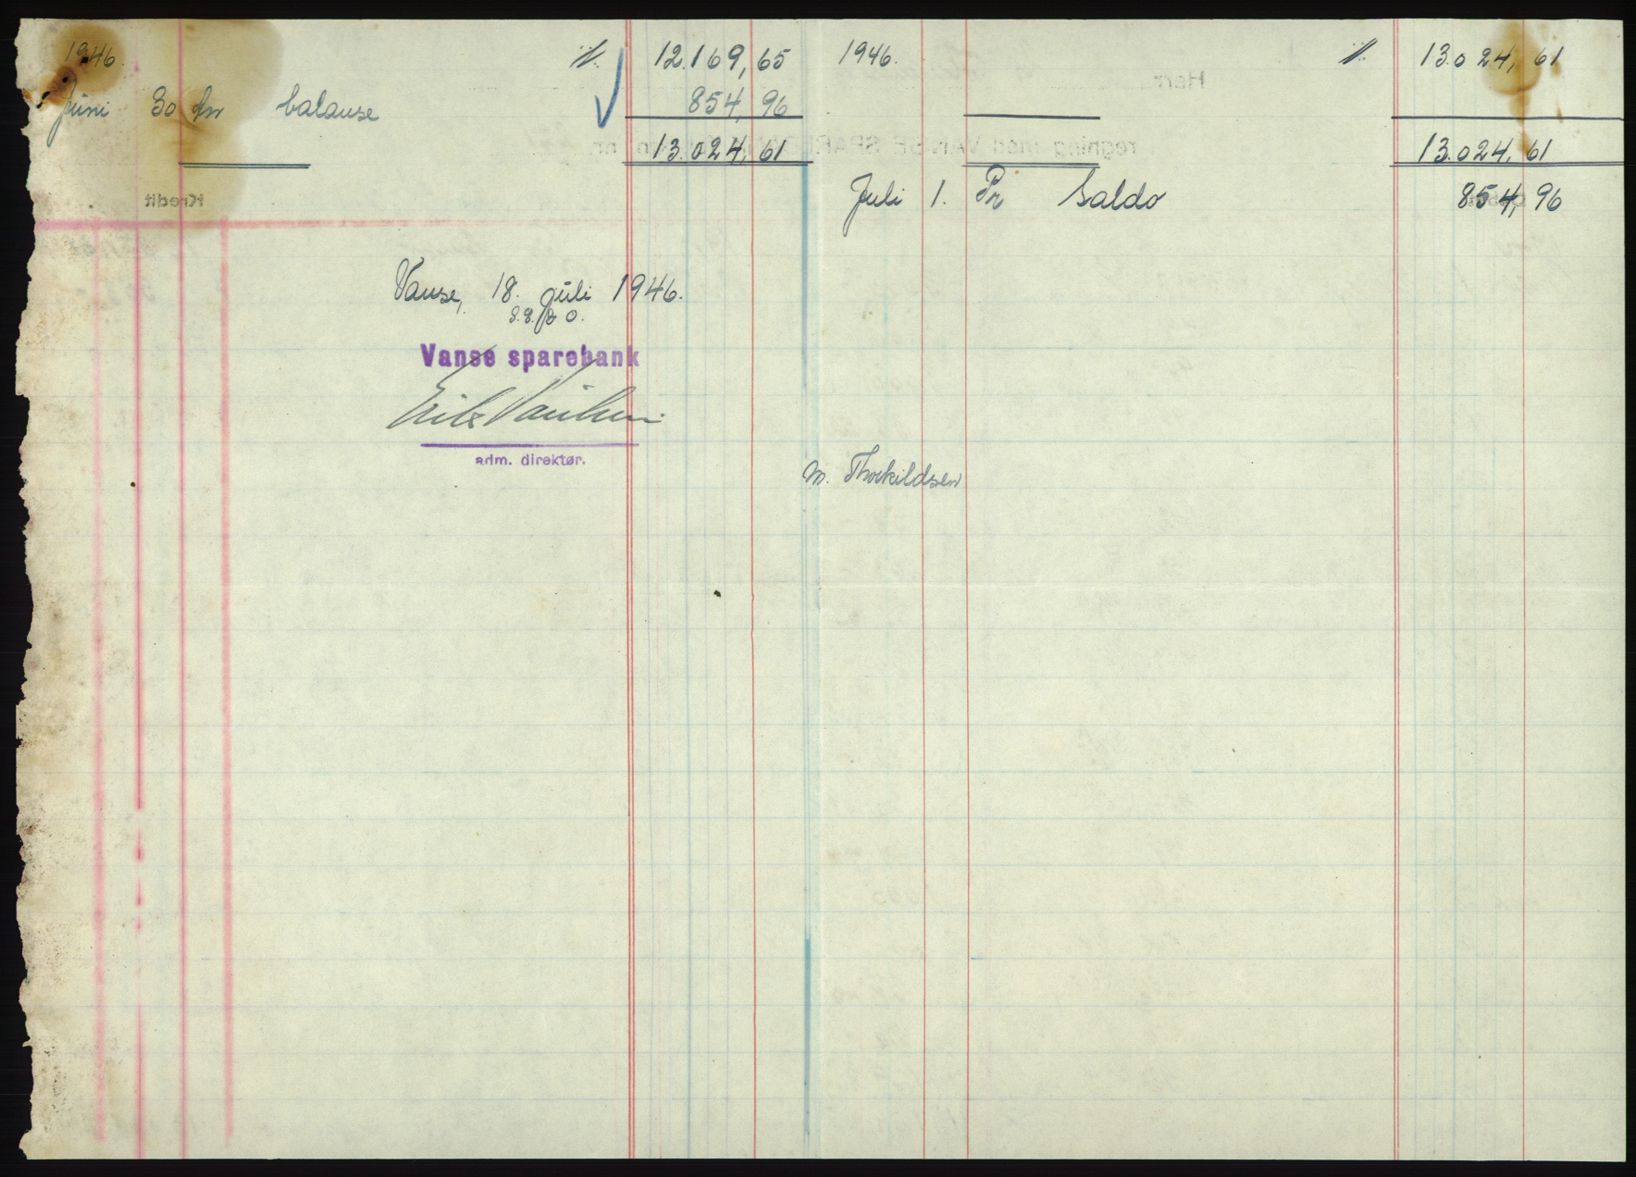 1946. 12.169,65
Juni 30 pr balanse 854,96
13.024,61
Vanse, 18. juli 1946.
Vanse sparebank
adm. direktør.
1946. 13.024,61
13.024,61
Juli 1. Pr Saldo 854,96
M. Thorkildsen
Herr
regning med VANSE SPAREBANK
Kredit